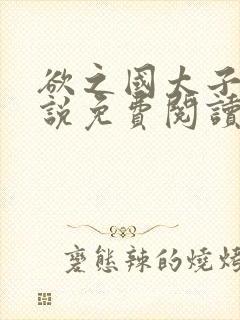 欲之國太子
說免費閱讀
變態辣的燒烤